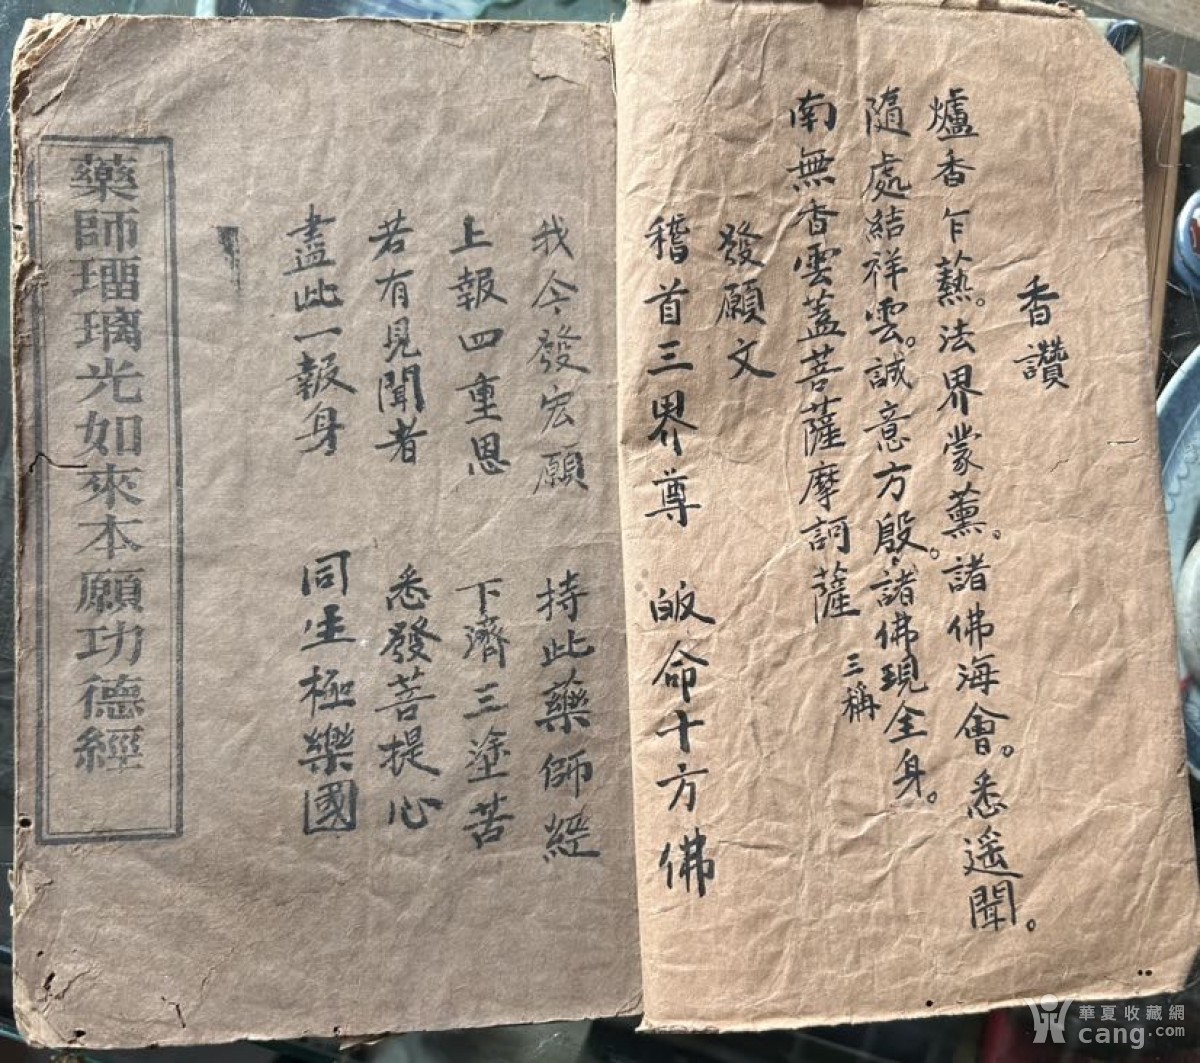 香讚
爐香乍爇。法界蒙薰。諸佛海會。悉遥聞。
隨處結祥雲。誠意方殷。諸佛現全身。
南無香雲蓋菩薩摩訶薩 三稱
發願文
稽首三界尊 皈命十方佛
我今發宏願 持此藥師經
上報四重恩 下濟三塗苦
若有見聞者 悉發菩提心
盡此一報身 同生極樂國
藥師瑠璃光如來本願功德經
華夏收藏網
cang.com